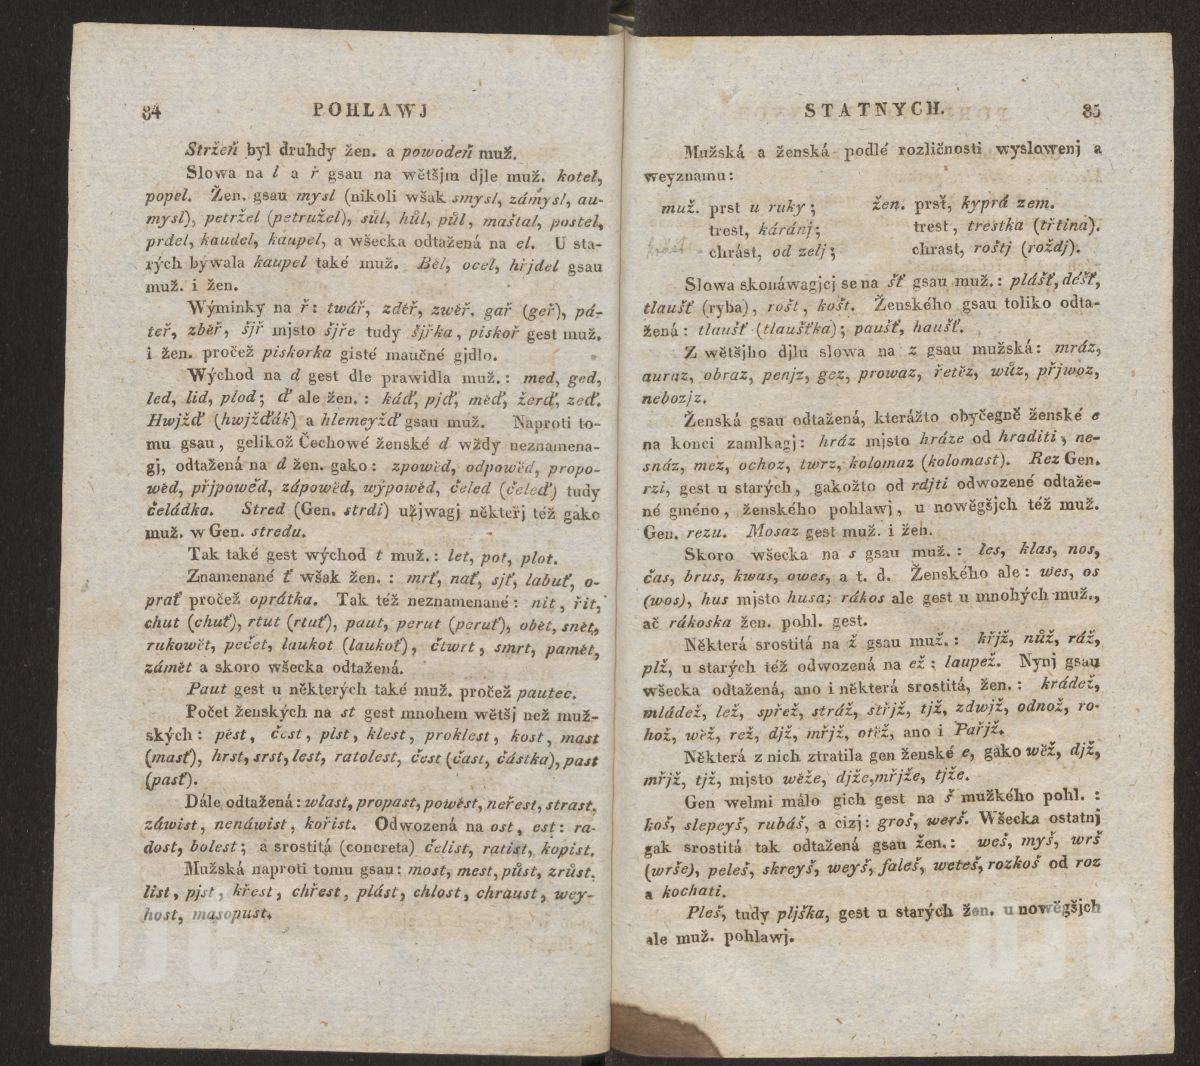 84 POHLAWJ
Stržeň byl druhdy žen. a powodeň muž.
Slowa na l a ř gsau na wětšjm djle muž. kotel,
popel. Žen. gsau mysl (nikoli wšak smysl, zámysl, au-
mysl), petržel (petružel), sůl, hůl, půl, maštal, postel,
prdel, kaudel, kaupel, a wšecka odtažená na el. U sta-
rých býwala kaupel také muž. Běl, ocel, hřjdel gsau
muž. i žen.
Wýminky na ř: twář, zděř, zwěř, gař (geř), pá-
teř, zběř, šjř mjsto šjře tudy šjřka, piskoř gest muž.
i žen. pročež piskorka gisté maučné gjdlo.
Wýchod na d gest dle prawidla muž.: med, ged,
led, lid, plod; ď ale žen.: káď, pjď, měď, žerď, zeď.
Hwjžď (hwjžďák) a hlemeyžď gsau muž. Naproti to-
mu gsau, gelikož Čechowé ženské d wždy neznamena-
gj, odtažená na d žen. gako: zpowěd, odpowěd, propo-
wěd, přjpowěd, zápowěd, wýpowěd, čeled (čeleď) tudy
čeládka. Stred (Gen. strdi) užjwagj někteřj též gako
muž. w Gen. stredu.
Tak také gest wýchod t muž.: let, pot, plot.
Znamenané ť wšak žen. : mrť, nať, sjť, labuť, o-
prať pročež oprátka. Tak též neznamenané: nit, řit,
chut (chuť), rtut (rtuť), paut, perut (peruť), obět, snět,
rukowět, pečet, laukot (laukoť), čtwrt, smrt, pamět,
zámět a skoro wšecka odtažená.
Paut gest u některých také muž. pročež pautec.
Počet ženských na st gest mnohem wětšj než muž-
ských: pěst, čest, plst, klest, proklest, kost, mast
(masť), hrst, srst, lest, ratolest, čest (část, částka), past
(pasť).
Dále odtažená: wlast, propast, powěst, neřest, strast,
záwist, nenáwist, kořist. Odwozená na ost, est: ra-
dost, bolest; a srostitá (concreta) čelist, ratist, kopist.
Mužská naproti tomu gsau: most, mest, půst, zrůst,
list, pjst, křest, chřest, plást, chlost, chraust, wey-
host, masopust.
STATNYCH. 85
Mužská a ženská podlé rozličnosti wyslowenj a
weyznamu:
muž. prst u ruky; žen. prsť, kyprá zem.
trest, káránj; trest, trestka (třtina).
chrást, od zelj; chrast, roštj (roždj).
Slowa skonáwagjcj se na šť gsau muž.: plášť, déšť,
tlaušť (ryba), rošt, košt. Ženského gsau toliko odta-
žená: tlaušť (tlaušťka); paušť, haušť.
Z wětšjho djlu slowa na z gsau mužská: mráz,
auraz, obraz, penjz, gez, prowaz, řetěz, wůz, přjwoz,
nebozjz.
Ženská gsau odtažená, kterážto obyčegně ženské e
na konci zamlkagj: hráz mjsto hráze od hraditi, ne-
snáz, mez, ochoz, twrz, kolomaz (kolomast). Rez Gen.
rzi, gest u starých, gakožto od rdjti odwozené odtaže-
né gméno, ženského pohlawj, u nowěgšjch též muž.
Gen. rezu. Mosaz gest muž. i žen.
Skoro wšecka na s gsau muž.: les, klas, nos,
čas, brus, kwas, owes, a t. d. Ženského ale: wes, os
(wos), hus mjsto husa; rákos ale gest u mnohých muž.,
ač rákoska žen. pohl. gest.
Některá srostitá na ž gsau muž.: křjž, nůž, ráž,
plž, u starých též odwozená na ež: laupež. Nynj gsau
wšecka odtažená, ano i některá srostitá, žen.: krádež,
mládež, lež, spřež, stráž, střjž, tjž, zdwjž, odnož, ro-
hož, wěž, rež, djž, mřjž, otěž, ano i Pařjž.
Některá z nich ztratila gen ženské e, gako wěž, djž,
mřjž, tjž, mjsto wěže, djže, mřjže, tjže.
Gen welmi málo gich gest na š mužkého pohl. :
koš, slepeyš, rubáš, a cizj: groš, werš. Wšecka ostatnj
gak srostitá tak odtažená gsau žen.: weš, myš, wrš
(wrše), peleš, skreyš, weyš, faleš, weteš, rozkoš od roz
a kochati.
Pleš, tudy pljška, gest u starých žen. u nowěgšjch
ale muž. pohlawj.